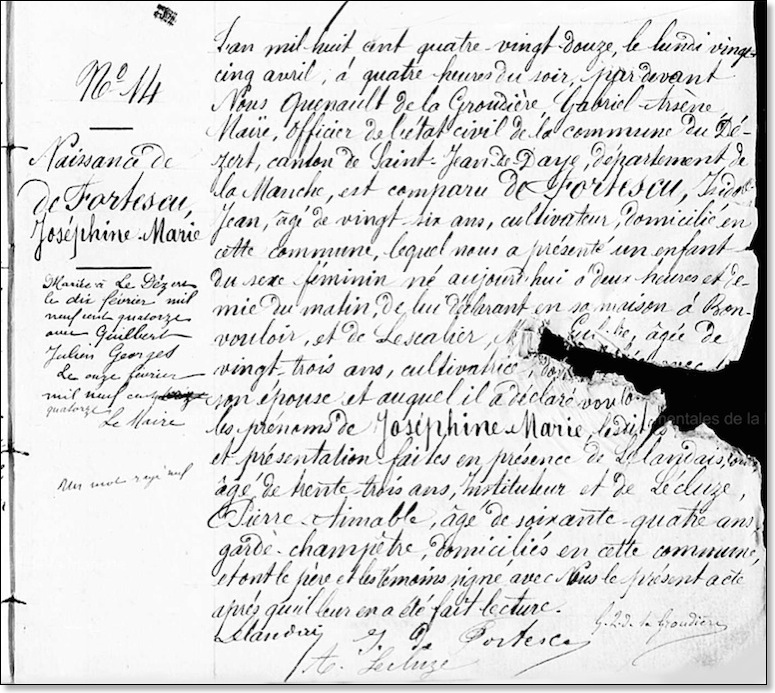 Nº 14
Naissance de
de Fortescu
Joséphine Marie
Mariée à Le Dézert
le dix février mil
neuf cent quatorze
avec Guilbert
Julien Georges
Le onze février
mil neuf cent
quatorze
Le Maire
Un mot rayé nul
L'an mil huit cent quatre-vingt douze, le lundi vingt-
cinq avril, à quatre heures du soir, par devant
Nous Quenault de la Groudière Gabriel Arsène
Maire, Officier de l'état civil de la commune du Dé-
zert, canton de Saint-Jean de Daye, département de
la Manche, est comparu de Fortescu, Isidore
Jean, âgé de vingt six ans, cultivateur, domicilié en
cette commune, lequel nous a présenté un enfant
du sexe féminin né aujourd'hui à deux heures et de-
mie du matin, de lui déclarant en sa maison à Bon-
vouloir, et de Lescalier, âgée de
vingt-trois ans, cultivatrice,
son épouse et auquel il a déclaré
les prénoms de Joséphine Marie,
et présentation faites en présence de Lelandais,
âgé de trente-trois ans, Instituteur et de Lécluze,
Pierre Aimable, âgé de soixante-quatre ans
garde-champêtre, domiciliés en cette commune,
et ont le père et les témoins signé avec Nous le présent acte
après qu'il leur en a été fait lecture.
Lelandais J. de Fortescu G. Q. de la Groudière
A. Lecluze
entales de la